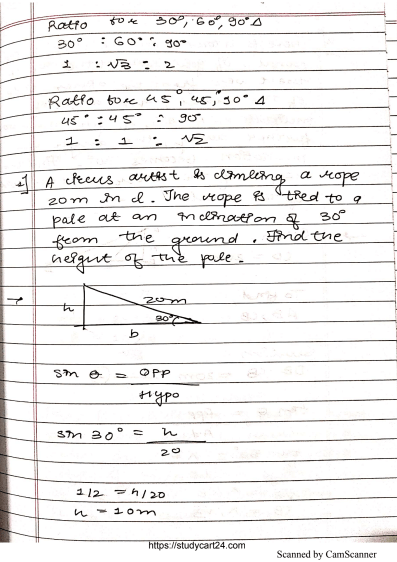 Ratio for 30°, 60°, 90° Δ
30° : 60° : 90°
1 : √3 : 2
Ratio for 45°, 45°, 90° Δ
45° : 45° : 90°
1 : 1 : √2
A circus artist is climbing a rope
20m in l. The rope is tied to a
pole at an inclination of 30°
from the ground. Find the
height of the pole.
→
h
20m
30°
b
sin θ = OPP / Hypo
sin 30° = h / 20
1/2 = h/20
h = 10m
https://studycart24.com
Scanned by CamScanner